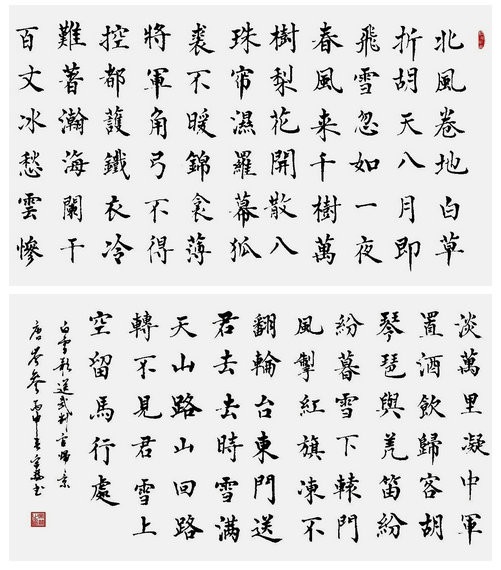 北風卷地白草
折胡天八月即
飛雪忽如一夜
春風来千樹萬
樹梨花開散入
珠帘濕羅幕狐
裘不暖錦衾薄
將軍角弓不得
控都護鐵衣冷
難著瀚海闌干
百丈冰愁雲慘
淡萬里凝中軍
置酒飲歸客胡
琴琶與羌笛紛
紛暮雪下轅門
風掣紅旗凍不
翻輪台東門送
君去去時雪滿
天山路山回路
轉不見君雪上
空留馬行處
白雪歌送武判官歸京
唐岑參丙申書